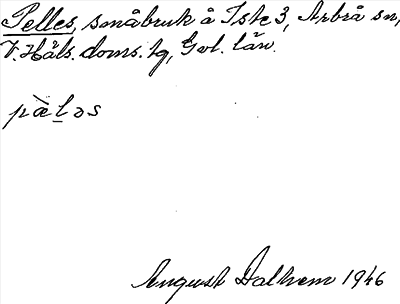 Pelles, småbruk å Iste 3, Arbrå sn,
V. Häls. doms. tg, Gvl. län.
pæ̀ləs
August Dalhem 1946